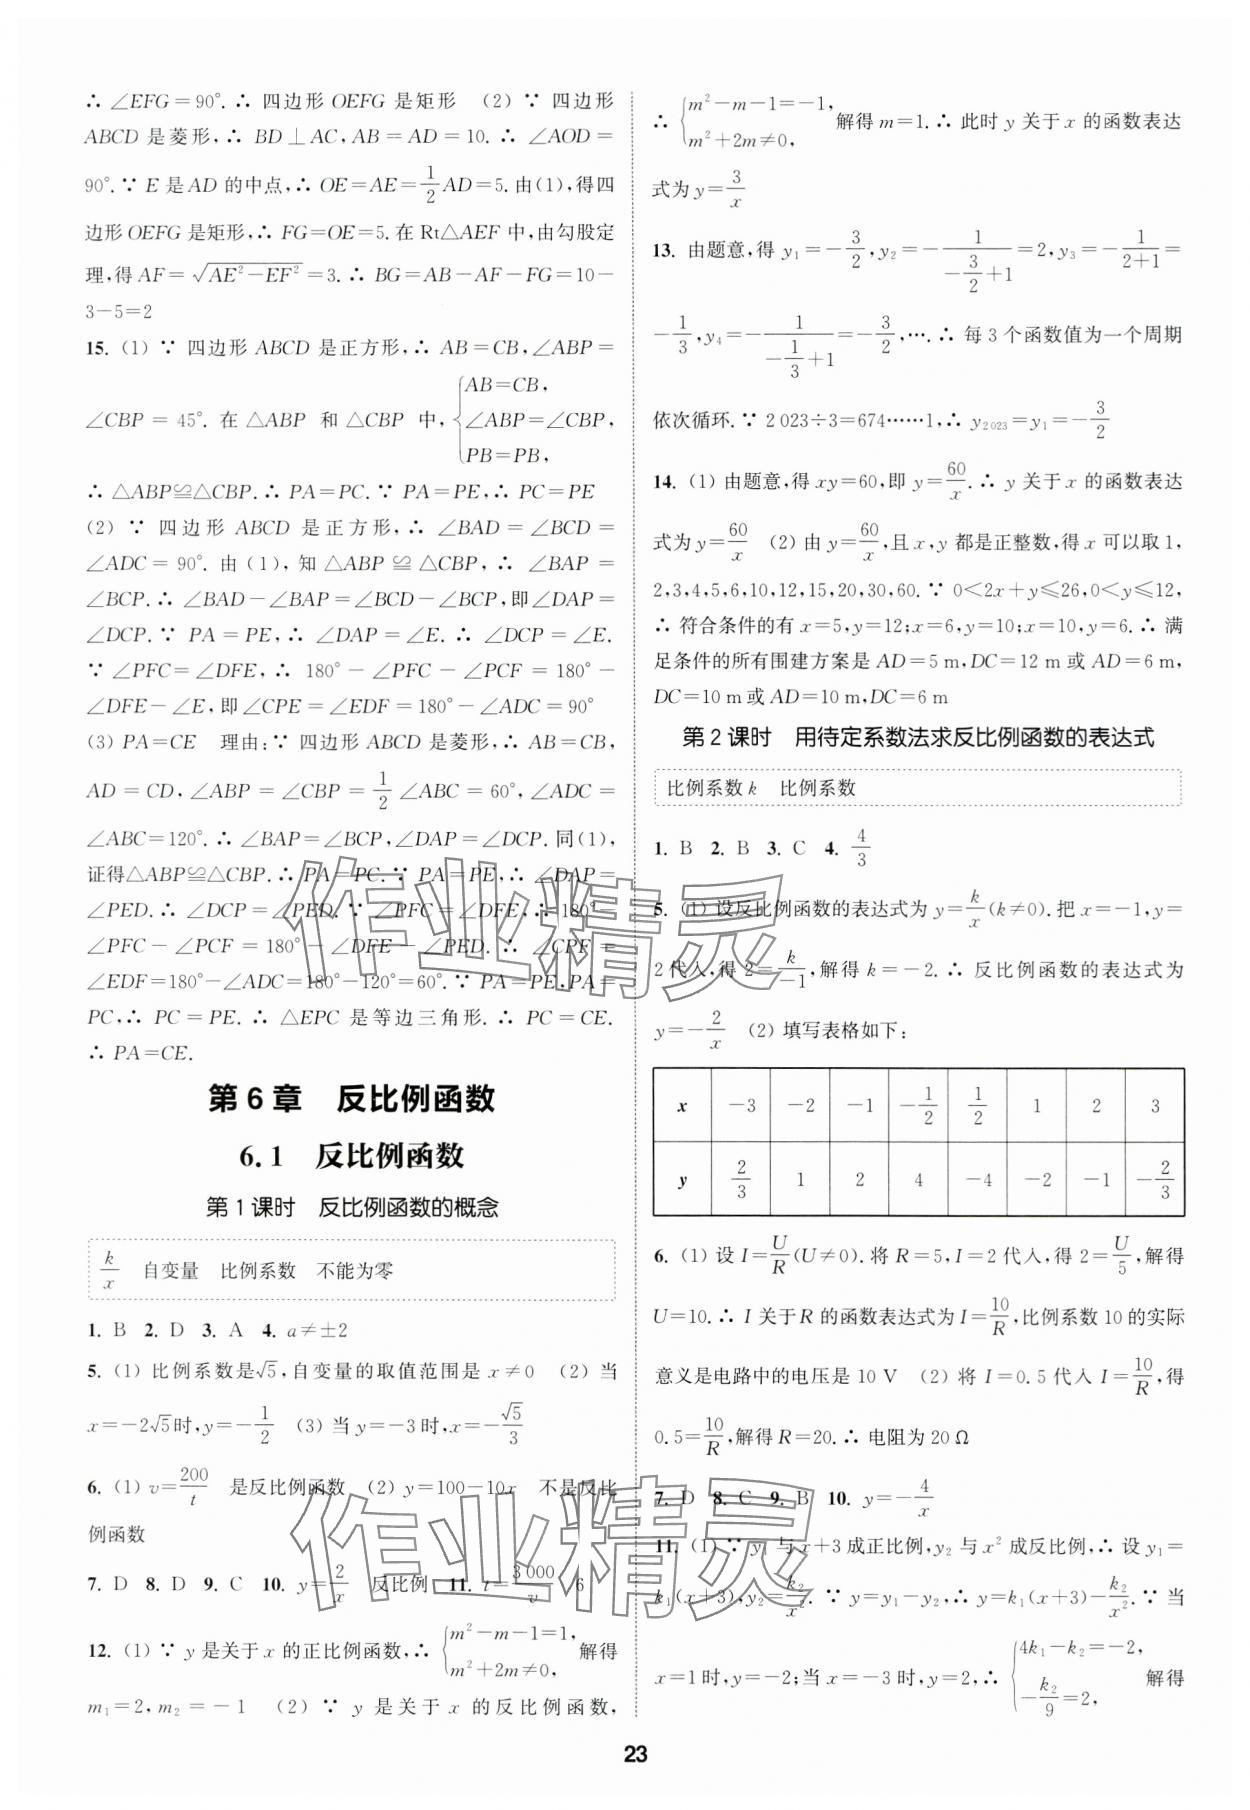 ∴ ∠EFG=90°.∴ 四边形 OEFG 是矩形 (2) ∵ 四边形
ABCD 是菱形,∴ BD⊥AC,AB=AD=10.∴ ∠AOD=
90°.∵ E 是 AD 的中点,∴ OE=AE=1/2AD=5.由(1),得四
边形 OEFG 是矩形,∴ FG=OE=5.在 Rt△AEF 中,由勾股定
理,得 AF=√(AE²−EF²)=3.∴ BG=AB−AF−FG=10−
3−5=2
15. (1) ∵ 四边形 ABCD 是正方形,∴ AB=CB,∠ABP=
∠CBP=45°.在△ABP 和△CBP 中,{AB=CB, ∠ABP=∠CBP, PB=PB,
∴ △ABP≌△CBP.∴ PA=PC.∵ PA=PE,∴ PC=PE
(2) ∵ 四边形 ABCD 是正方形,∴ ∠BAD=∠BCD=
∠ADC=90°.由(1),知△ABP≌△CBP,∴ ∠BAP=
∠BCP.∴ ∠BAD−∠BAP=∠BCD−∠BCP,即∠DAP=
∠DCP.∵ PA=PE,∴ ∠DAP=∠E.∴ ∠DCP=∠E.
∵ ∠PFC=∠DFE,∴ 180°−∠PFC−∠PCF=180°−
∠DFE−∠E,即∠CPE=∠EDF=180°−∠ADC=90°
(3) PA=CE 理由:∵ 四边形 ABCD 是菱形,∴ AB=CB,
AD=CD,∠ABP=∠CBP=1/2∠ABC=60°,∠ADC=
∠ABC=120°.∴ ∠BAP=∠BCP,∠DAP=∠DCP.同(1),
证得△ABP≌△CBP.∴ PA=PC.∵ PA=PE,∴ ∠DAP=
∠PED.∴ ∠DCP=∠PED.∵ ∠PFC=∠DFE,∴ 180°−
∠PFC−∠PCF=180°−∠DFE−∠PED.∴ ∠CPF=
∠EDF=180°−∠ADC=180°−120°=60°.∵ PA=PE,PA=
PC,∴ PC=PE.∴ △EPC 是等边三角形.∴ PC=CE.
∴ PA=CE.
第 6 章 反比例函数
6.1 反比例函数
第 1 课时 反比例函数的概念
k/x 自变量 比例系数 不能为零
1. B 2. D 3. A 4. a≠±2
5. (1) 比例系数是√5,自变量的取值范围是 x≠0 (2) 当
x=−2√5时,y=−1/2 (3) 当 y=−3 时,x=−√5/3
6. (1) v=200/t 是反比例函数 (2) y=100−10x 不是反比
例函数
7. D 8. D 9. C 10. y=2/x 反比例 11. t=3 000/v 6
12. (1) ∵ y 是关于 x 的正比例函数,∴ {m²−m−1=1, m²+2m≠0, 解得
m₁=2,m₂=−1 (2) ∵ y 是关于 x 的反比例函数,
∴ {m²−m−1=−1, m²+2m≠0, 解得 m=1.∴ 此时 y 关于 x 的函数表达
式为 y=3/x
13. 由题意,得 y₁=−3/2,y₂=−1/(−3/2+1)=2,y₃=−1/(2+1)=
−1/3,y₄=−1/(−1/3+1)=−3/2,….∴ 每 3 个函数值为一个周期
依次循环.∵ 2 023÷3=674……1,∴ y₂₀₂₃=y₁=−3/2
14. (1) 由题意,得 xy=60,即 y=60/x.∴ y 关于 x 的函数表达
式为 y=60/x (2) 由 y=60/x,且 x,y 都是正整数,得 x 可以取 1,
2,3,4,5,6,10,12,15,20,30,60.∵ 0<2x+y≤26,0<y≤12,
∴ 符合条件的有 x=5,y=12;x=6,y=10;x=10,y=6.∴ 满
足条件的所有围建方案是 AD=5 m,DC=12 m 或 AD=6 m,
DC=10 m 或 AD=10 m,DC=6 m
第 2 课时 用待定系数法求反比例函数的表达式
比例系数 k 比例系数
1. B 2. B 3. C 4. 4/3
5. (1) 设反比例函数的表达式为 y=k/x(k≠0).把 x=−1,y=
2代入,得 2=k/−1,解得 k=−2.∴ 反比例函数的表达式为
y=−2/x (2) 填写表格如下:
x −3 −2 −1 −1/2 1/2 1 2 3
y 2/3 1 2 4 −4 −2 −1 −2/3
6. (1) 设 I=U/R(U≠0).将 R=5,I=2 代入,得 2=U/5,解得
U=10.∴ I 关于 R 的函数表达式为 I=10/R,比例系数 10 的实际
意义是电路中的电压是 10 V (2) 将 I=0.5 代入 I=10/R,得
0.5=10/R,解得 R=20.∴ 电阻为 20 Ω
7. D 8. C 9. B 10. y=−4/x
11. (1) ∵ y₁ 与 x+3 成正比例,y₂ 与 x² 成反比例,∴ 设 y₁=
k₁(x+3),y₂=k₂/x².∵ y=y₁−y₂,∴ y=k₁(x+3)−k₂/x².∵ 当
x=1 时,y=−2;当 x=−3 时,y=2,∴ {4k₁−k₂=−2, −k₂/9=2, 解得
23
作业精灵
作业精灵